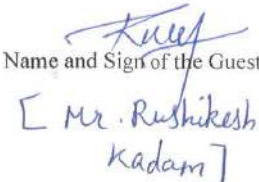 Name and Sign of the Guest
[ Mr. Rushikesh
Kadam ]